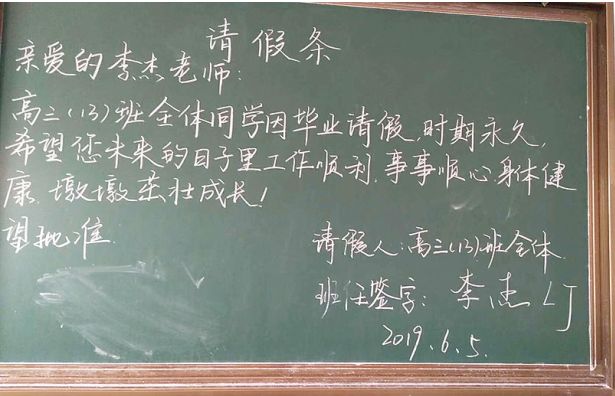 请假条
亲爱的李杰老师:
高三(13)班全体同学因毕业请假,时期永久,
希望您未来的日子里工作顺利.事事顺心.身体健
康.墩墩茁壮成长!
望批准.
请假人:高三(13)班全体.
班任签字:李杰 LJ
2019.6.5.